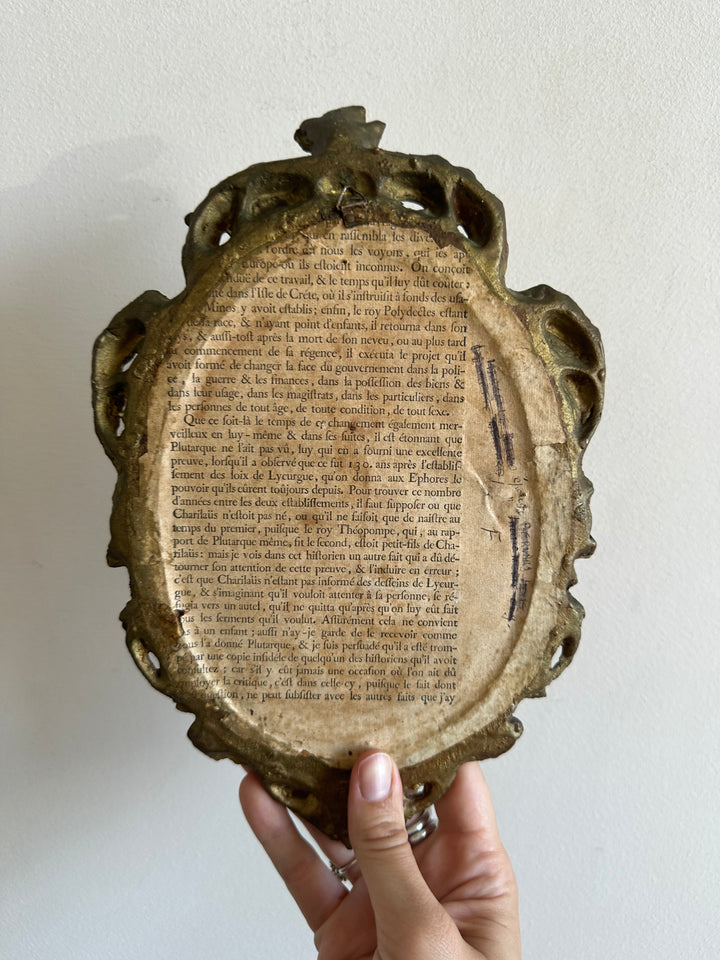 qui en raſſembla les dive
l'ordre nous les voyons, qui les ap-
Europe où ils eſtoient inconnus. On conçoit
de ce travail, & le temps qu'il luy dût coûter;
dans l'Iſle de Créte, où il s'inſtruiſit à fonds des uſa-
Minos y avoit eſtablis; enfin, le roy Polydectes eſtant
de ſa race, & n'ayant point d'enfants, il retourna dans ſon
& auſſi-toſt après la mort de ſon neveu, ou au plus tard
commencement de ſa régence, il exécuta le projet qu'il
avoit formé de changer la face du gouvernement dans la poli-
ce, la guerre & les finances, dans la poſſeſſion des biens &
dans leur uſage, dans les magiſtrats, dans les particuliers, dans
les perſonnes de tout âge, de toute condition, de tout ſexe.
Que ce ſoit-là le temps de ce changement également mer-
veilleux en luy-même & dans ſes ſuites, il eſt étonnant que
Plutarque ne l'ait pas vû, luy qui en a fourni une excellente
preuve, lorſqu'il a obſervé que ce fut 130. ans après l'eſtabliſ-
ſement des loix de Lycurgue, qu'on donna aux Ephores le
pouvoir qu'ils eûrent toûjours depuis. Pour trouver ce nombre
d'années entre les deux eſtabliſſements, il faut ſuppoſer ou que
Charilaüs n'eſtoit pas né, ou qu'il ne faiſoit que de naiſtre au
temps du premier, puiſque le roy Théopompe, qui, au rap-
port de Plutarque même, fit le ſecond, eſtoit petit-fils de Cha-
rilaüs: mais je vois dans cet hiſtorien un autre fait qui a dû dé-
tourner ſon attention de cette preuve, & l'induire en erreur;
c'eſt que Charilaüs n'eſtant pas informé des deſſeins de Lycur-
gue, & s'imaginant qu'il vouloit attenter à ſa perſonne, ſe ré-
fugia vers un autel, qu'il ne quitta qu'après qu'on luy eût fait
tous les ſerments qu'il voulut. Aſſurément cela ne convient
pas à un enfant; auſſi n'ay-je garde de le recevoir comme
nous l'a donné Plutarque, & je ſuis perſuadé qu'il a eſté trom-
pé par une copie infidéle de quelqu'un des hiſtoriens qu'il avoit
conſultez; car s'il y eût jamais une occaſion où l'on ait dû
employer la critique, c'eſt dans celle-cy, puiſque le fait dont
queſtion, ne peut ſubſiſter avec les autres faits que j'ay